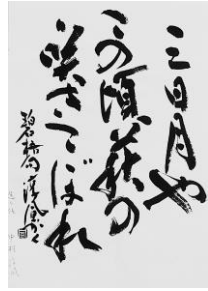 三日月や
この頃萩の
咲きこぼれ
碧梧桐句